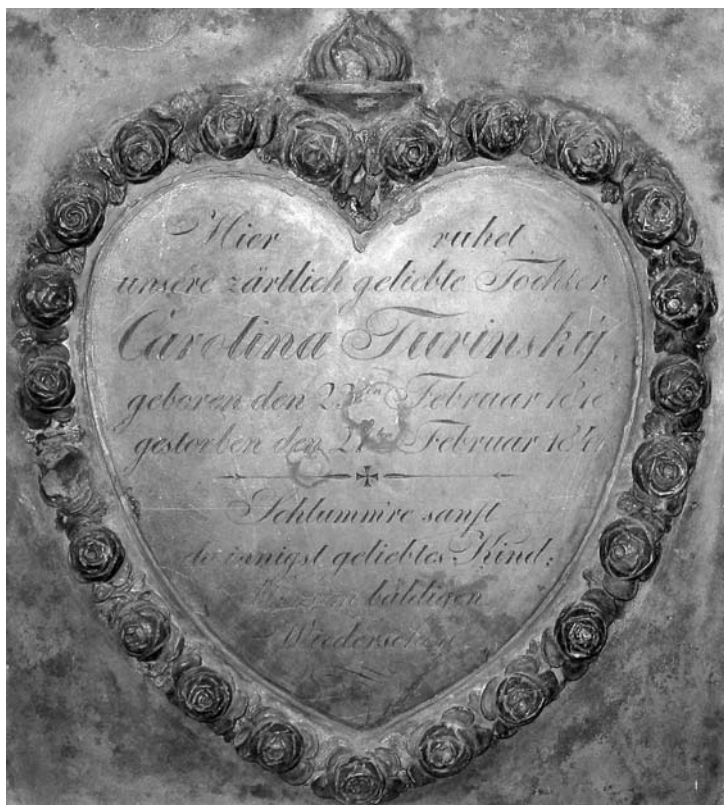 Hier ruhet
unsere zärtlich geliebte Tochter
Carolina Turinský
geboren den Februar
gestorben den Februar
Schlumm're sanft
du innigst geliebtes Kind;
baldigen
Wiedersehen